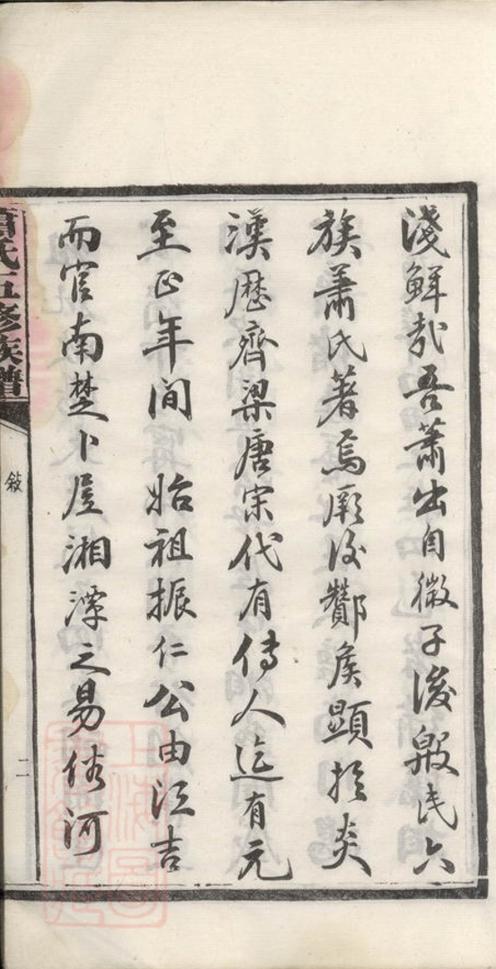 淺鮮哉吾蕭出自微子後殷民六
族蕭氏著焉厥後酇侯顯於炎
漢歷齊梁唐宋代有傳人迄有元
至正年间 始祖振仁公由江吉
而官南楚卜居湘潭之易俗河
蕭氏五修族譜
敍
二